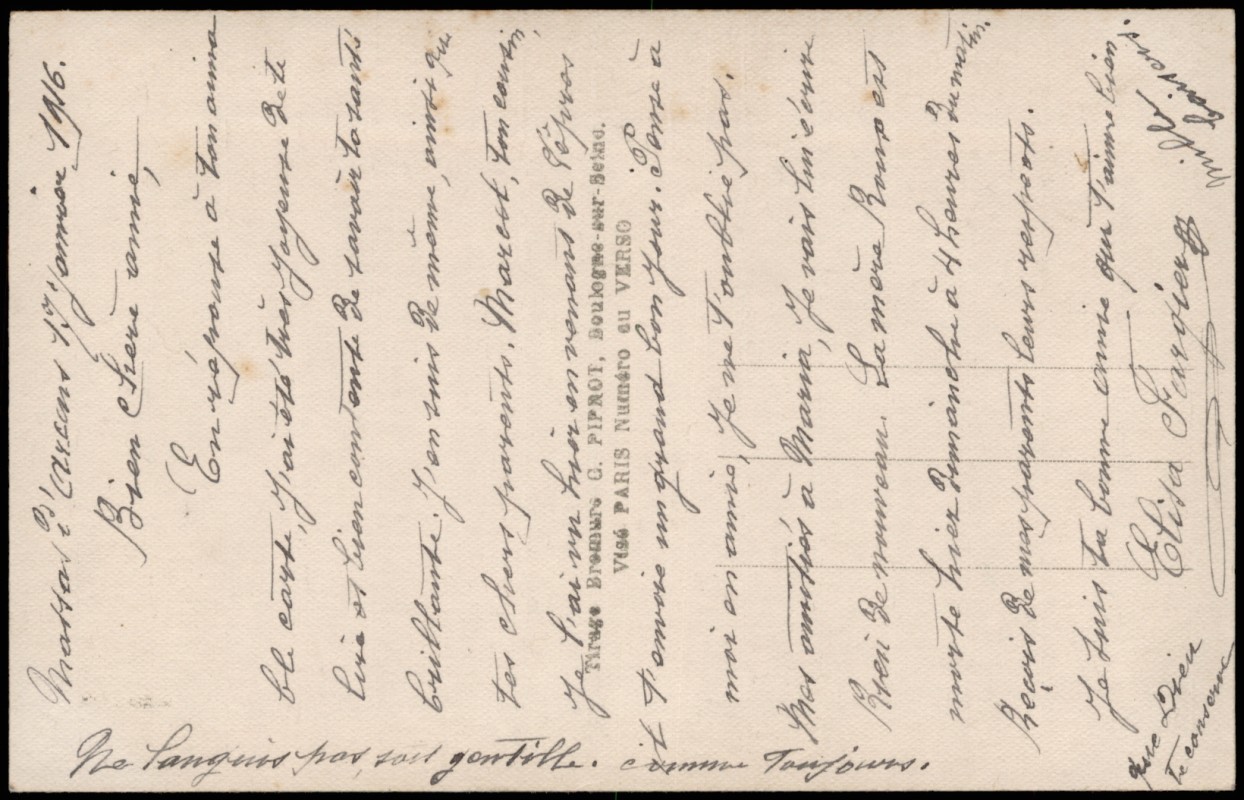 Massas d'Careans 17 Janvier 1916.
Bien chère amie,
En réponse à ton aima
ble carte, J'ai été très joyeuse de te
lire et bien contente de savoir ta santé
brillante. J'en suis de même, ainsi que
tes chers parents. Marcel, ton cousin,
Je l'ai vu hier en venant de Vêpres
et t'envoie un grand bonjour. Pense à
moi en amie, Je ne t'oublie pas.
Mes amitiés à Maria, Je vais lui écrire
Rien de nouveau. La mère Roux est
morte hier dimanche à 4 heures du matin.
Reçois de mes parents leurs respects.
Je suis ta bonne amie qui t'aime bien
mille baisers.
Elisa Fargier
Que Dieu
te conserve
Ne languis pas, sois gentille. comme toujours.
Tirage Bromure G. PIPROT, Boulogne-sur-Seine.
Visé PARIS Numéro au VERSO